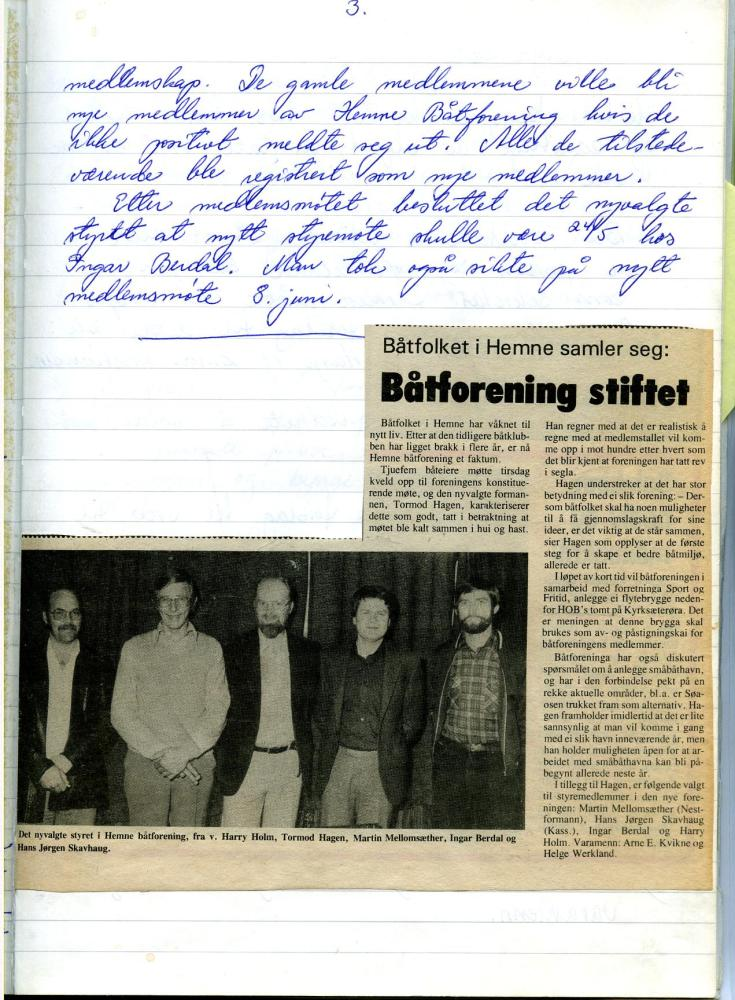 3.
medlemskap. De gamle medlemmene ville bli
nye medlemmer av Hemne Båtforening hvis de
ikke positivt meldte seg ut. Alle de tilstede-
værende ble registrert som nye medlemmer.
Etter medlemsmøtet besluttet det nyvalgte
styret at nytt styremøte skulle være 24/5 hos
Ingar Berdal. Man tok også sikte på nytt
medlemsmøte 8. juni.
Båtfolket i Hemne samler seg:
Båtforening stiftet
Båtfolket i Hemne har våknet til
nytt liv. Etter at den tidligere båtklub-
ben har ligget brakk i flere år, er nå
Hemne båtforening et faktum.
Tjuefem båteiere møtte tirsdag
kveld opp til foreningens konstitue-
rende møte, og den nyvalgte forman-
nen, Tormod Hagen, karakteriserer
dette som godt, tatt i betraktning at
møtet ble kalt sammen i hui og hast.
Han regner med at det er realistisk å
regne med at medlemstallet vil kom-
me opp i mot hundre etter hvert som
det blir kjent at foreningen har tatt rev
i segla.
Hagen understreker at det har stor
betydning med ei slik forening: – Der-
som båtfolket skal ha noen muligheter
til å få gjennomslagskraft for sine
ideer, er det viktig at de står sammen,
sier Hagen som opplyser at de første
steg for å skape et bedre båtmiljø,
allerede er tatt.
I løpet av kort tid vil båtforeningen i
samarbeid med forretninga Sport og
Fritid, anlegge ei flytebrygge neden-
for HOB's tomt på Kyrksæterøra. Det
er meningen at denne brygga skal
brukes som av- og påstigningskai for
båtforeningens medlemmer.
Båtforeninga har også diskutert
spørsmålet om å anlegge småbåthavn,
og har i den forbindelse pekt på en
rekke aktuelle områder, bl.a. er Søa-
osen trukket fram som alternativ. Ha-
gen framholder imidlertid at det er lite
sannsynlig at man vil komme i gang
med ei slik havn inneværende år, men
han holder muligheten åpen for at ar-
beidet med småbåthavna kan bli på-
begynt allerede neste år.
I tillegg til Hagen, er følgende valgt
til styremedlemmer i den nye fore-
ningen: Martin Mellomsæther (Nest-
formann), Hans Jørgen Skavhaug
(Kass.), Ingar Berdal og Harry
Holm. Varamenn: Arne E. Kvikne og
Helge Werkland.
Det nyvalgte styret i Hemne båtforening, fra v. Harry Holm, Tormod Hagen, Martin Mellomsæther, Ingar Berdal og
Hans Jørgen Skavhaug.